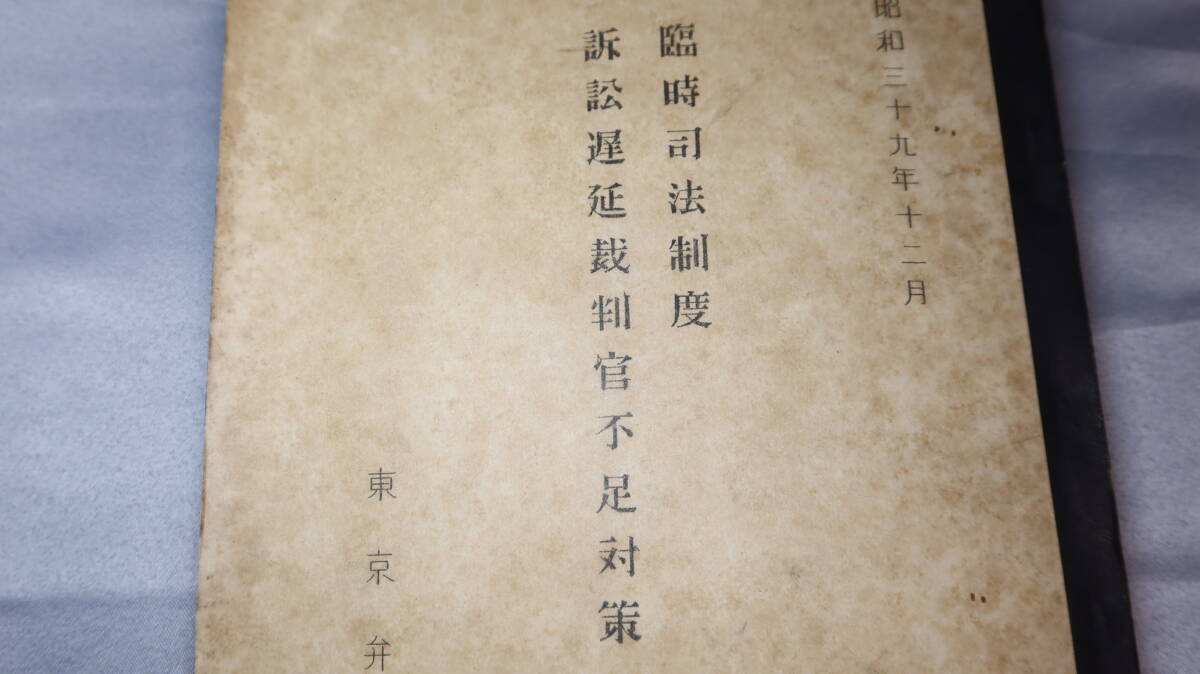 昭和三十九年十二月
臨時司法制度
訴訟遅延裁判官不足対策
東京弁